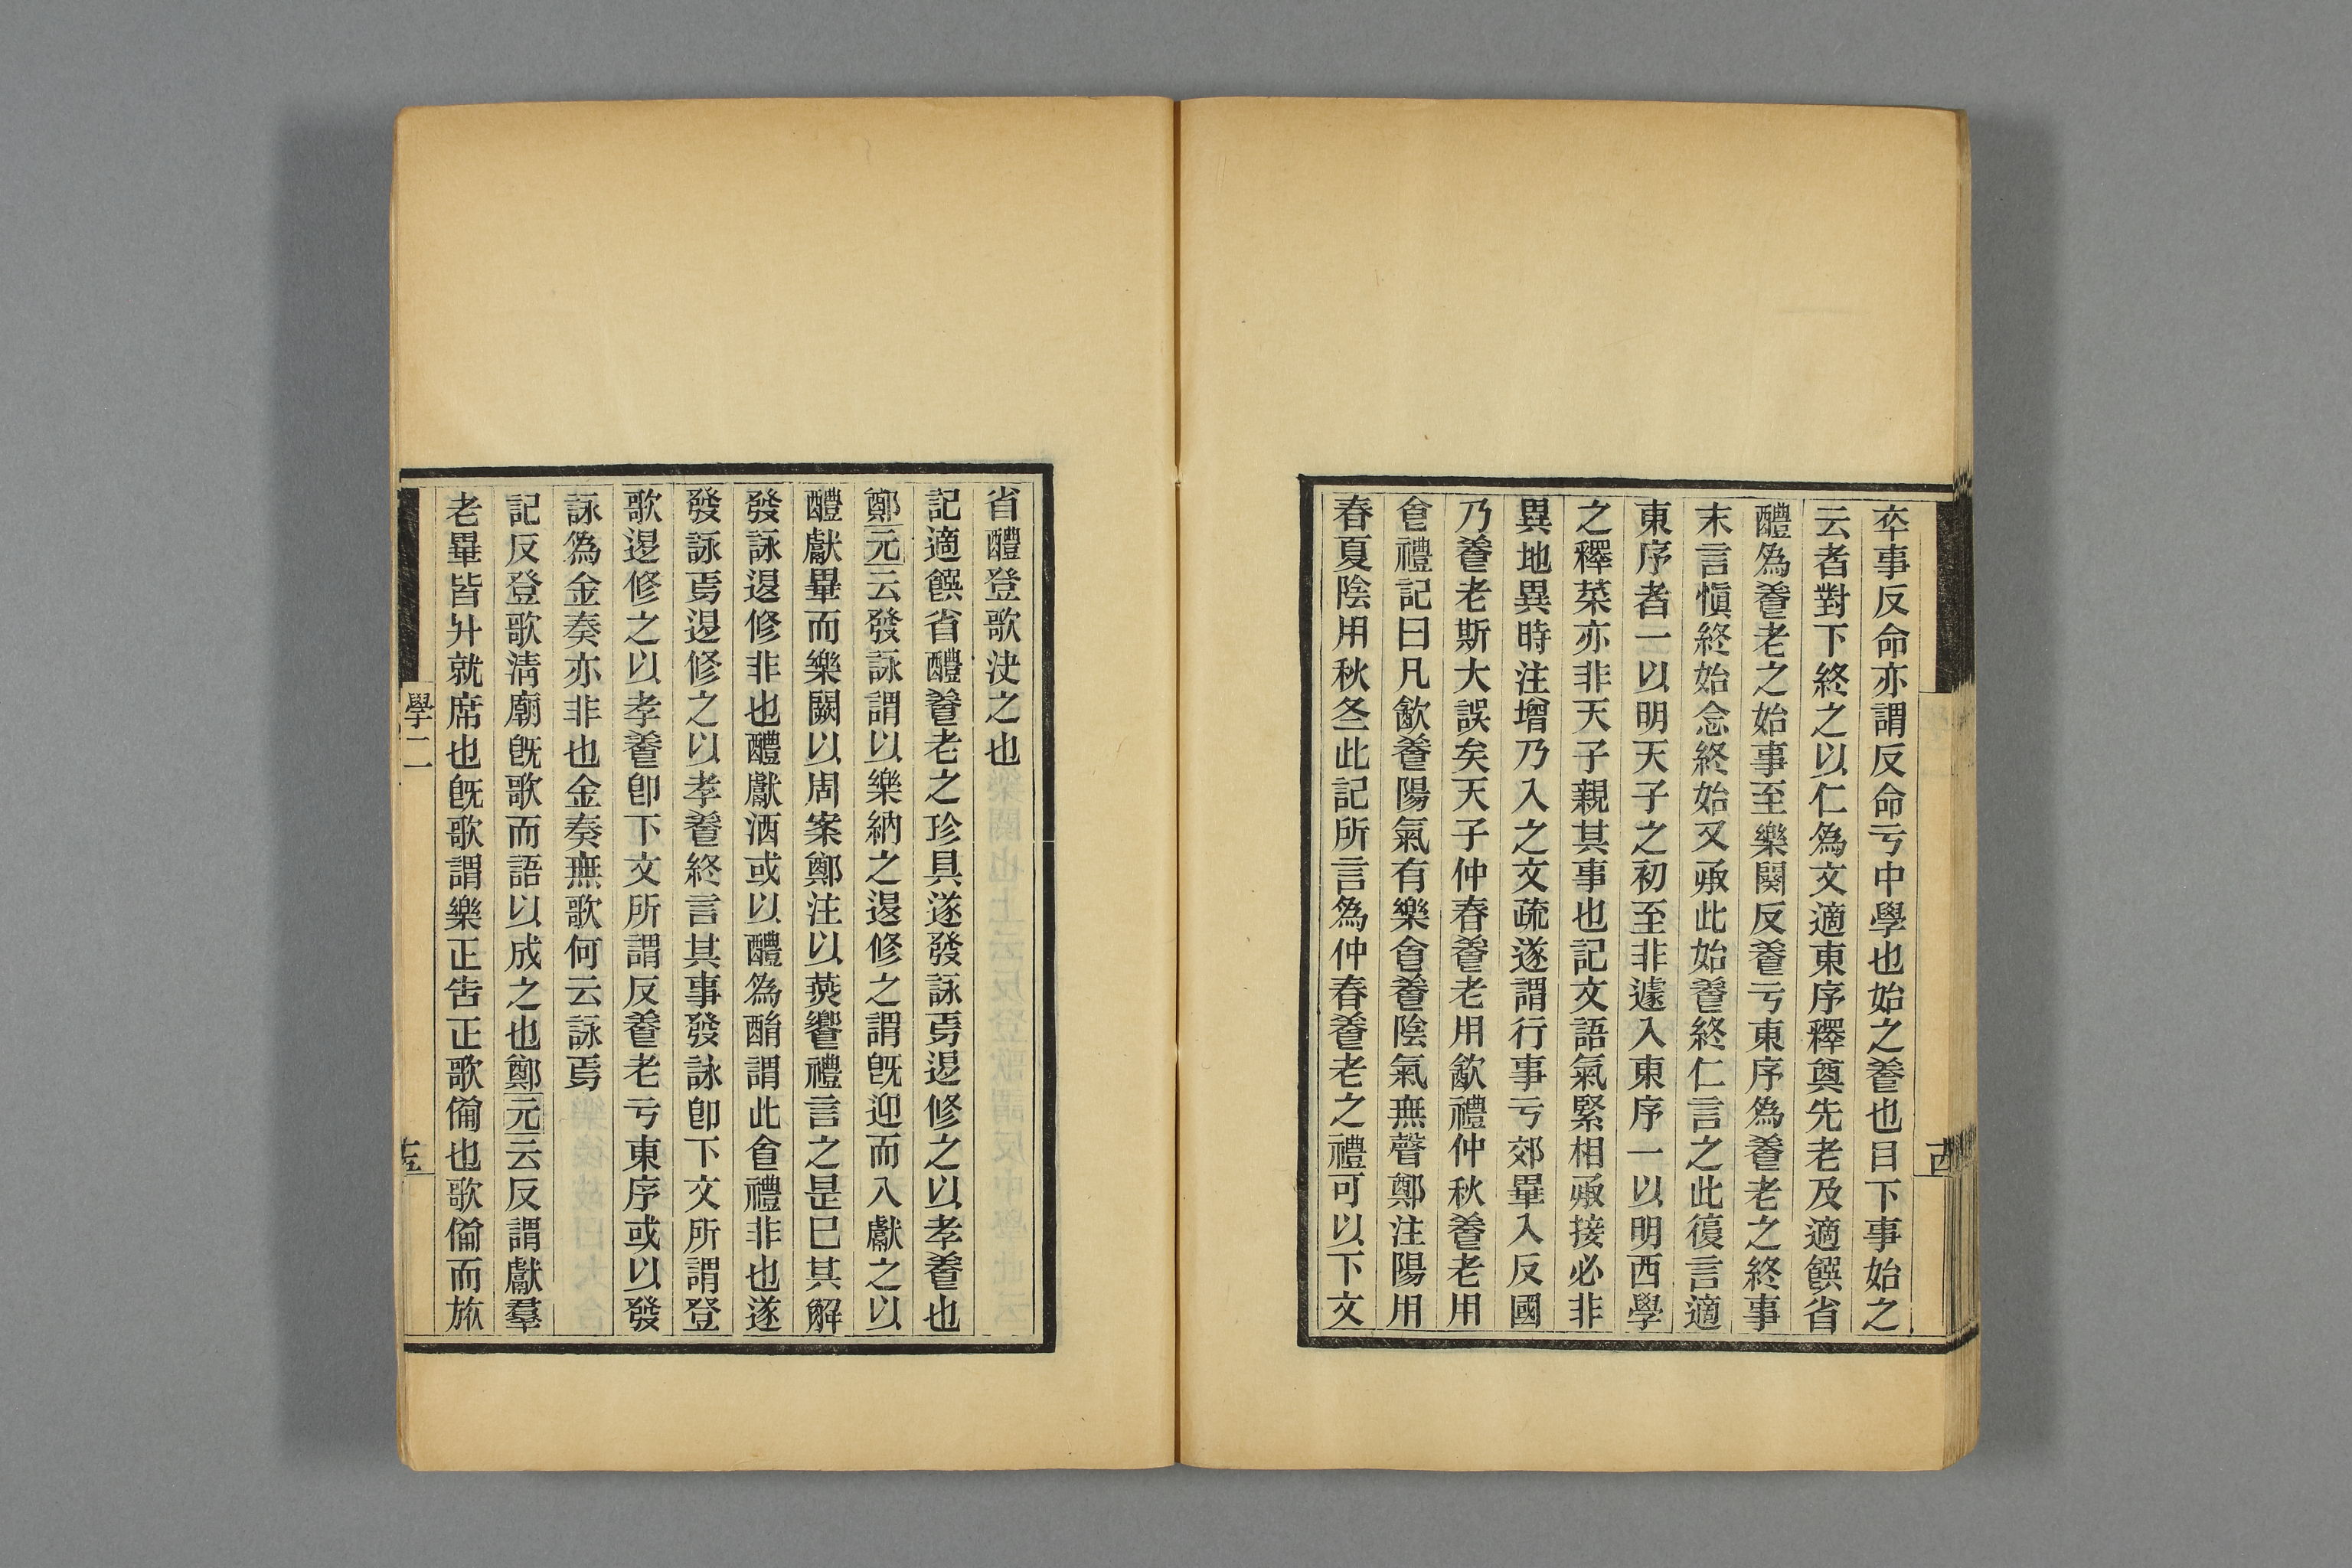 卒事反命亦謂反命亏中學也始之養也目下事始之
云者對下終之以仁爲文適東序釋奠先老及適饌省
醴爲養老之始事至樂闋反養亏東序爲養老之終事
末言愼終始念終始又承此始養終仁言之此復言適
東序者一以明天子之初至非遽入東序一以明西學
之釋菜亦非天子親其事也記文語氣緊相承接必非
異地異時注增乃入之文疏遂謂行事亏郊畢入反國
乃養老斯大誤矣天子仲春養老用飮禮仲秋養老用
食禮記曰凡飮養陽氣有樂食養陰氣無聲鄭注陽用
春夏陰用秋冬此記所言爲仲春養老之禮可以下文
十四
省醴登歌決之也
記適饌省醴養老之珍具遂發詠焉退修之以孝養也
鄭元云發詠謂以樂納之退修之謂旣迎而入獻之以
醴獻畢而樂闋以周案鄭注以燕饗禮言之是已其解
發詠退修非也醴獻酒或以醴爲酳謂此食禮非也遂
發詠焉退修之以孝養終言其事發詠卽下文所謂登
歌退修之以孝養卽下文所謂反養老亏東序或以發
詠爲金奏亦非也金奏無歌何云詠焉
記反登歌淸廟旣歌而語以成之也鄭元云反謂獻羣
老畢皆升就席也旣歌謂樂正告正歌備也歌備而旅
學二
十五